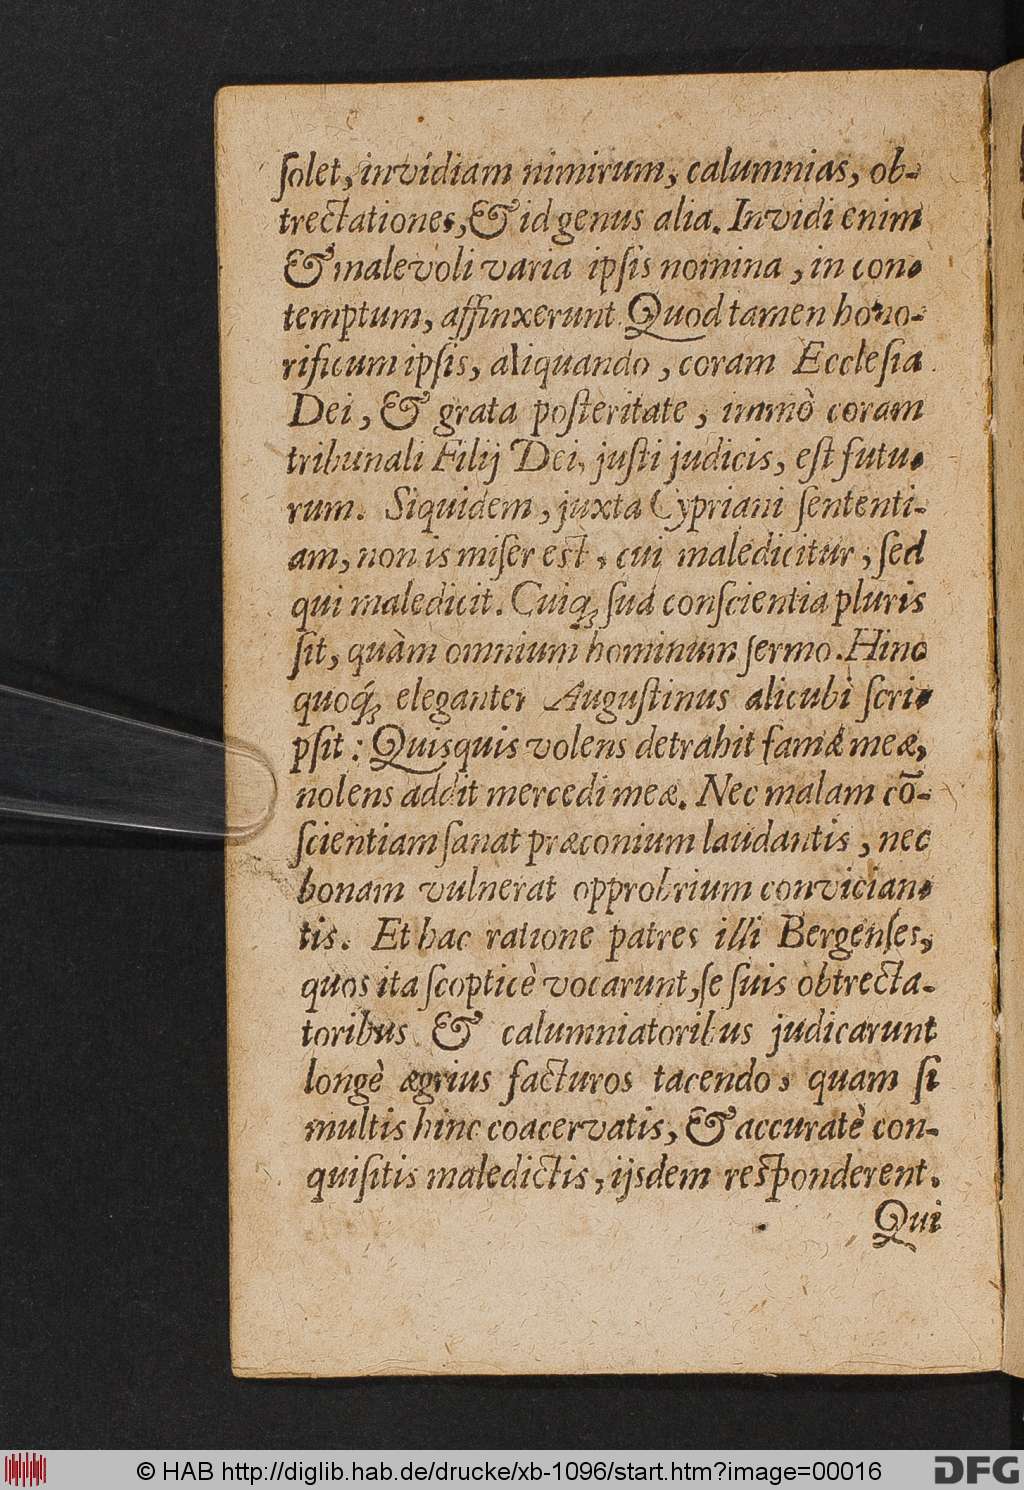 ſolet, invidiam nimirum, calumnias, ob-
trectationes, & id genus alia. Invidi enim
& malevoli varia ipſis nomina, in con-
temptum, affinxerunt. Quod tamen hono-
rificum ipſis, aliquando, coram Eccleſia
Dei, & grata poſteritate, immò coram
tribunali Filij Dei, juſti judicis, eſt futu-
rum. Siquidem, juxta Cypriani ſententi-
am, non is miſer eſt, cui maledicitur, ſed
qui maledicit. Cuiq; ſua conſcientia pluris
ſit, quàm omnium hominum ſermo. Hinc
quoq́; eleganter Auguſtinus alicubi ſcri-
pſit: Quisquis volens detrahit famæ meæ,
nolens addit mercedi meæ. Nec malam cō-
ſcientiam ſanat præconium laudantis, nec
bonam vulnerat opprobrium convician-
tis. Et hac ratione patres illi Bergenſes,
quos ita ſcopticè vocarunt, ſe ſuis obtrecta-
toribus & calumniatoribus judicarunt
longè ægrius facturos tacendo, quam ſi
multis hinc coacervatis, & accuratè con-
quiſitis maledictis, ijsdem reſponderent.
Qui
© HAB http://diglib.hab.de/drucke/xb-1096/start.htm?image=00016
DFG